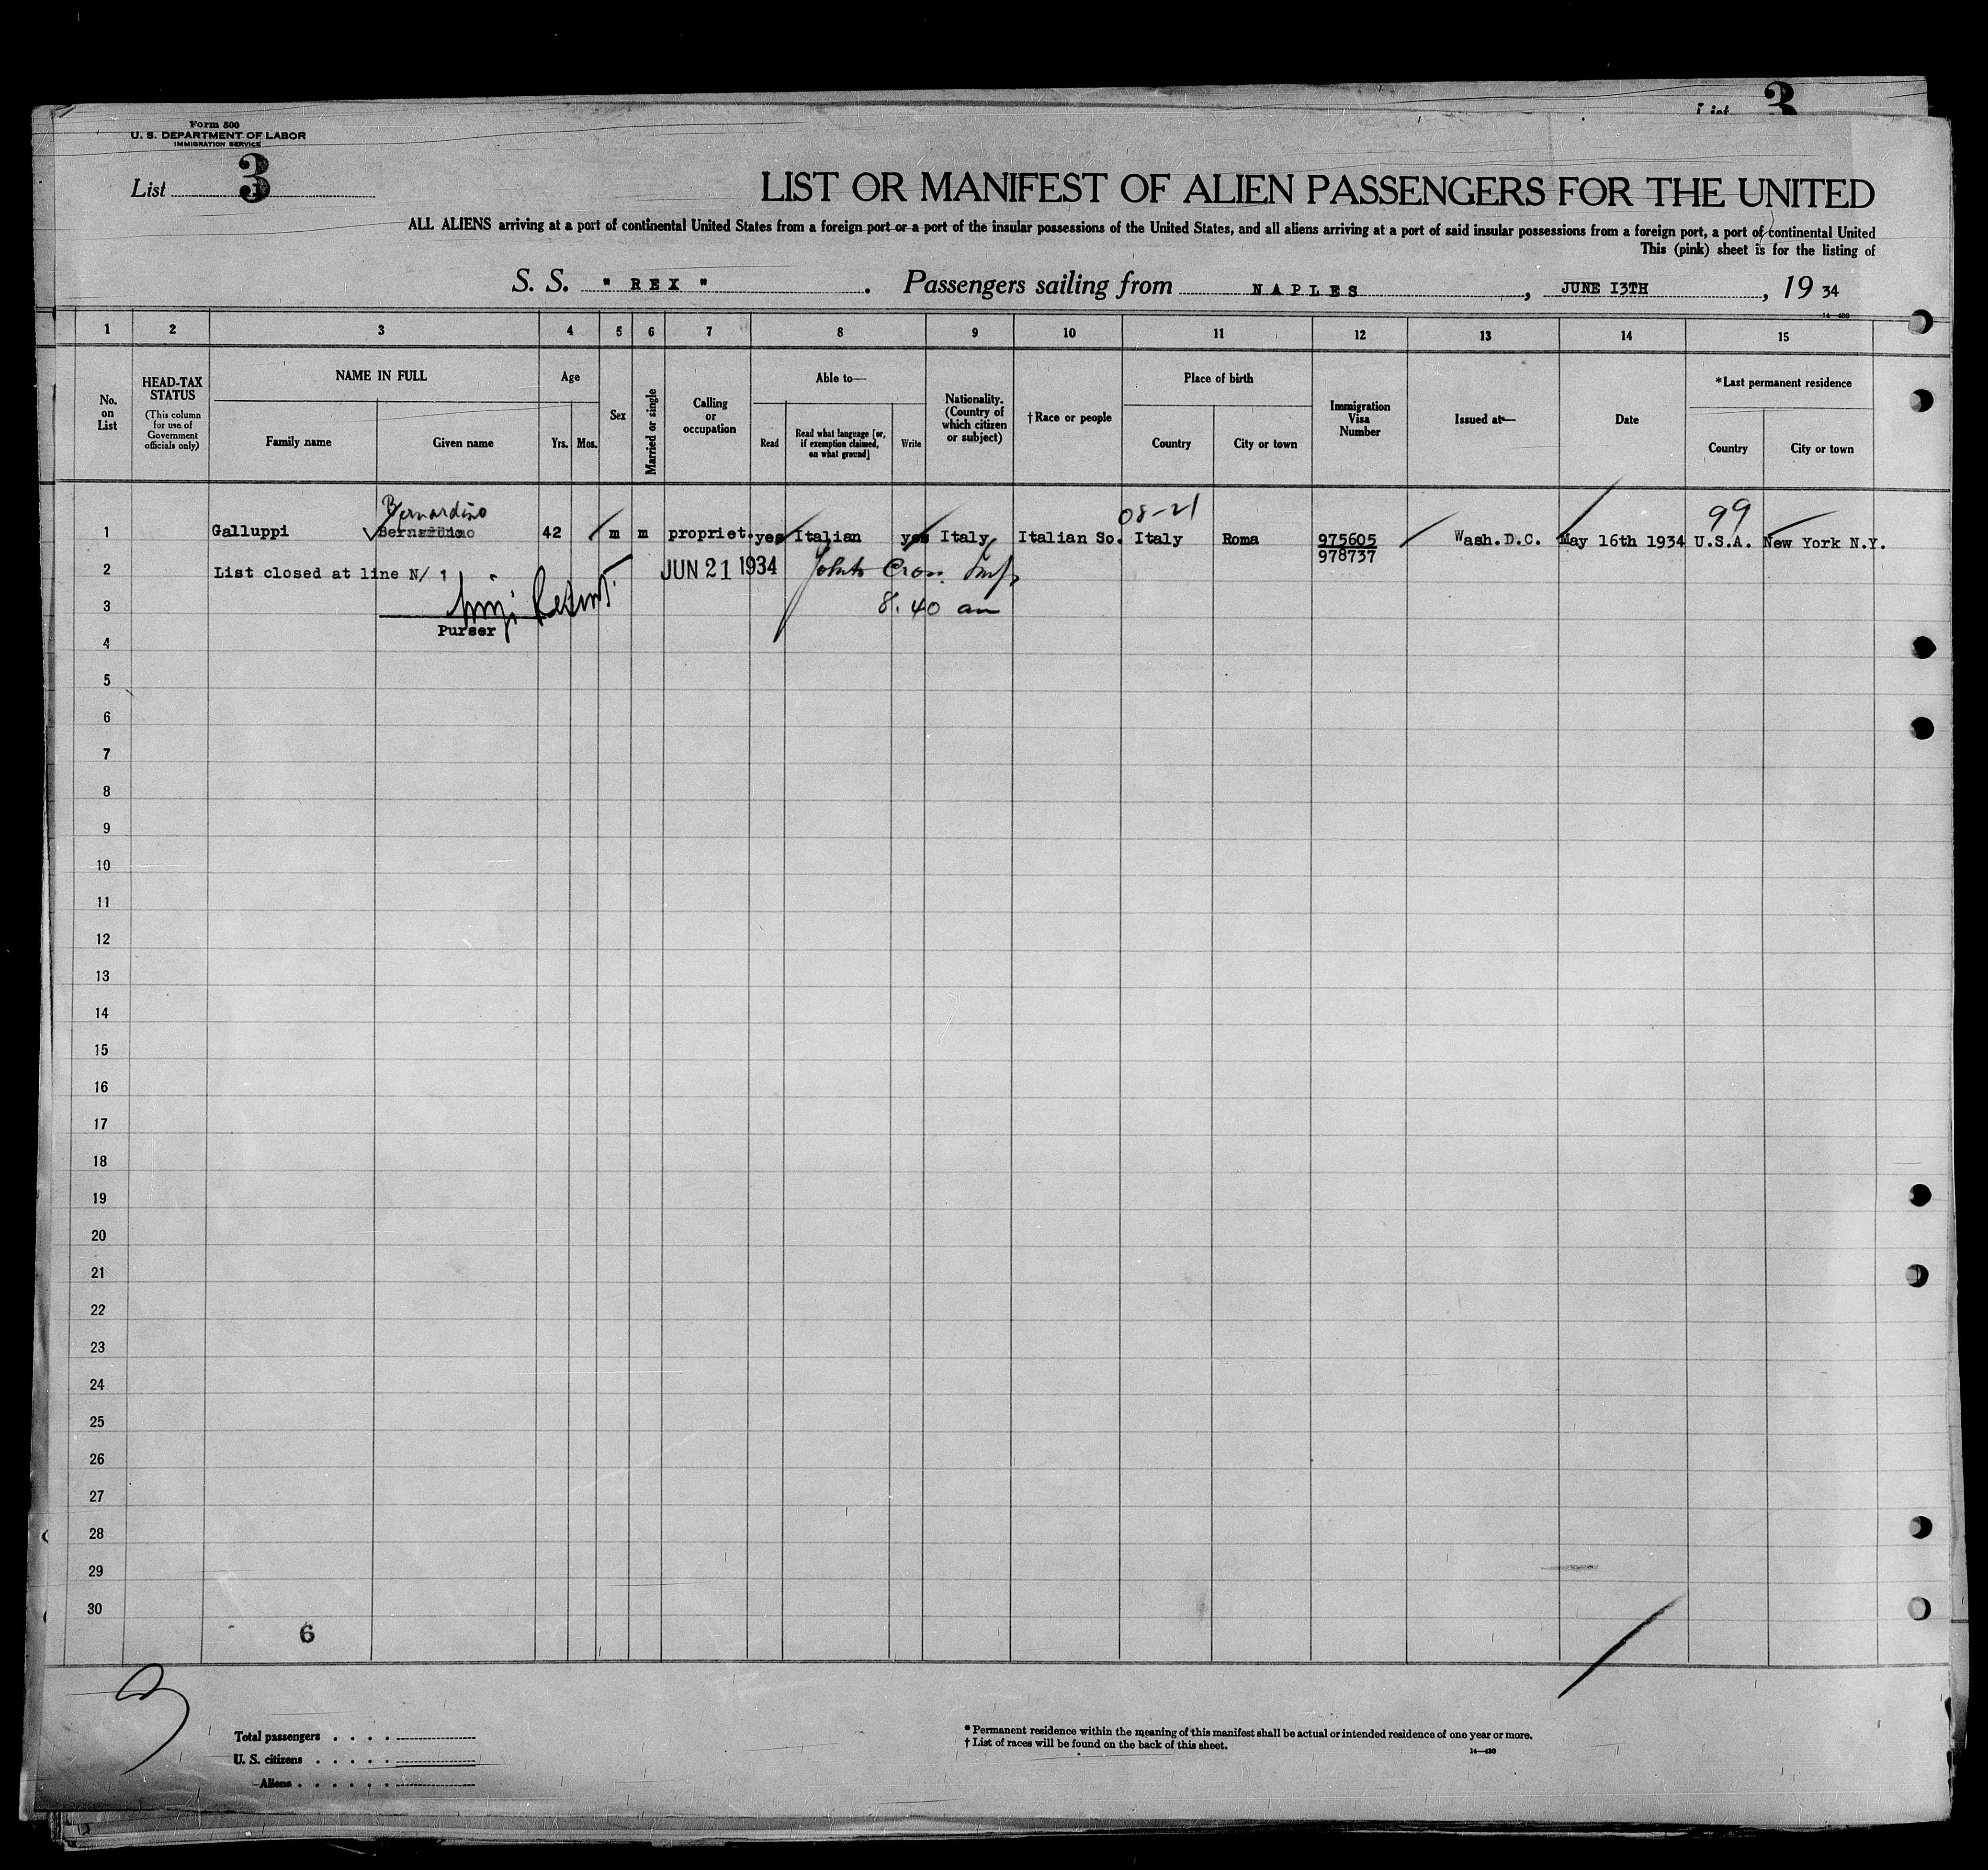 List 3
Form 500
U. S. DEPARTMENT OF LABOR
IMMIGRATION SERVICE
List 3
LIST OR MANIFEST OF ALIEN PASSENGERS FOR THE UNITED
ALL ALIENS arriving at a port of continental United States from a foreign port or a port of the insular possessions of the United States, and all aliens arriving at a port of said insular possessions from a foreign port, a port of continental United
This (pink) sheet is for the listing of
S. S. " REX " . Passengers sailing from NAPLES , JUNE I3TH , 19 34
14—430
1 2 3 4 5 6 7 8 9 10 11 12 13 14 15
No. on List
HEAD-TAX STATUS (This column for use of Government officials only)
NAME IN FULL
Family name Given name
Age
Yrs. Mos.
Sex
Married or single
Calling or occupation
Able to—
Read Read what language [or, if exemption claimed, on what ground] Write
Nationality. (Country of which citizen or subject)
†Race or people
Place of birth
Country City or town
Immigration Visa Number
Issued at—
Date
*Last permanent residence
Country City or town
Bernardino 08-21 99
1 Galluppi 42 m m propriet. yes Italian yes Italy Italian So. Italy Roma 975605 Wash.D.C. May 16th 1934 U.S.A. New York N.Y.
978737
2 List closed at line N/ 1 JUN 21 1934
3 8.40 am
Purser
4
5
6
7
8
9
10
11
12
13
14
15
16
17
18
19
20
21
22
23
24
25
26
27
28
29
30
6
Total passengers . . . .
U. S. citizens . . . . .
Aliens . . . . . .
* Permanent residence within the meaning of this manifest shall be actual or intended residence of one year or more.
† List of races will be found on the back of this sheet.
14—430